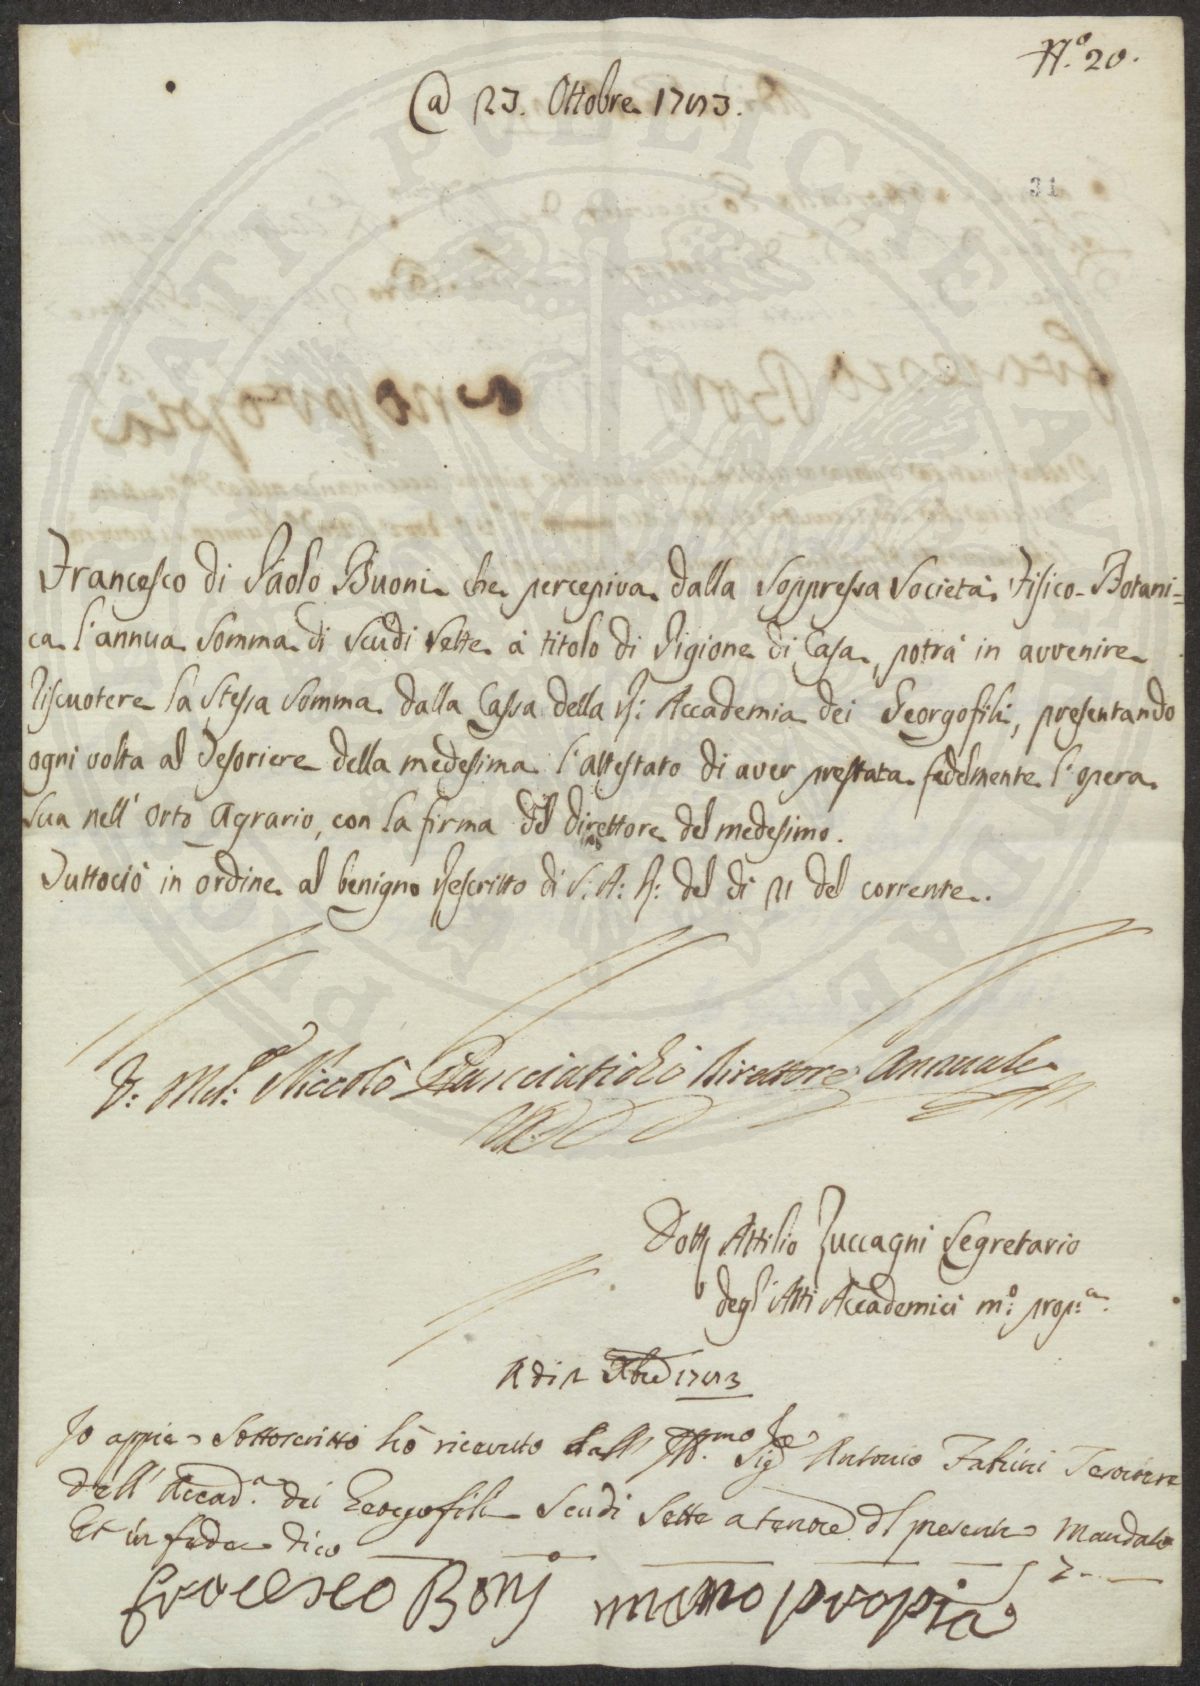 N.° 20.
@ 23. Ottobre 1783.
31
Francesco di Paolo Buoni che percepiva dalla soppressa Società Fisico-Botani=
ca l'annua somma di Scudi Sette à titolo di Pigione di Casa, potrà in avvenire
riscuotere la stessa somma dalla Cassa della R: Accademia dei Georgofili, presentando
ogni volta al Tesoriere della medesima l'attestato di aver prestata fedelmente l'opera
sua nell' Orto Agrario, con la firma del direttore del medesimo.
Tuttociò in ordine al benigno Rescritto di S: A: R: del dì 21 del corrente.
Niccolò Panciatichi Direttore Annuale
Dott Attilio Zuccagni Segretario
degl' Atti Accademici m:° prop:ª
Adi Xbre 1783
Io appie sottoscritto hò ricevuto dall' Ill.mo Sig.re Antonio Fabrini Tesoriere
dell' Accad.ª dei Georgofili Scudi Sette a tenore del presente Mandato
Et in fede dico
Francesco Bonj mano propia